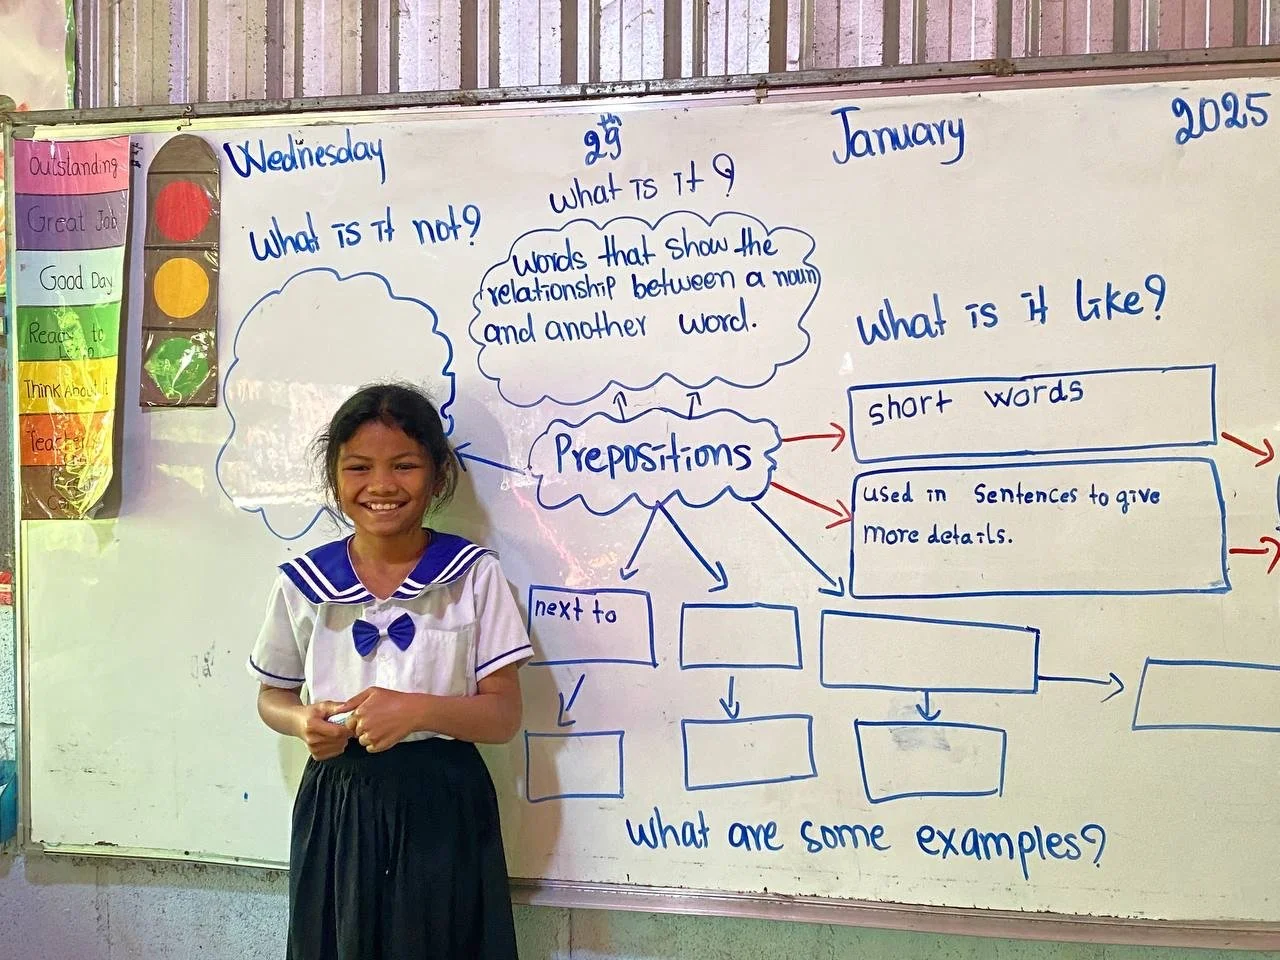 Wednesday 29th January 2025
Outstanding
Great Job
Good Day
Ready to
Learn
Think About it
What is it not?
What is it?
words that show the
relationship between a noun
and another word.
Prepositions
What is it like?
short words
used in sentences to give
more details.
next to
What are some examples?